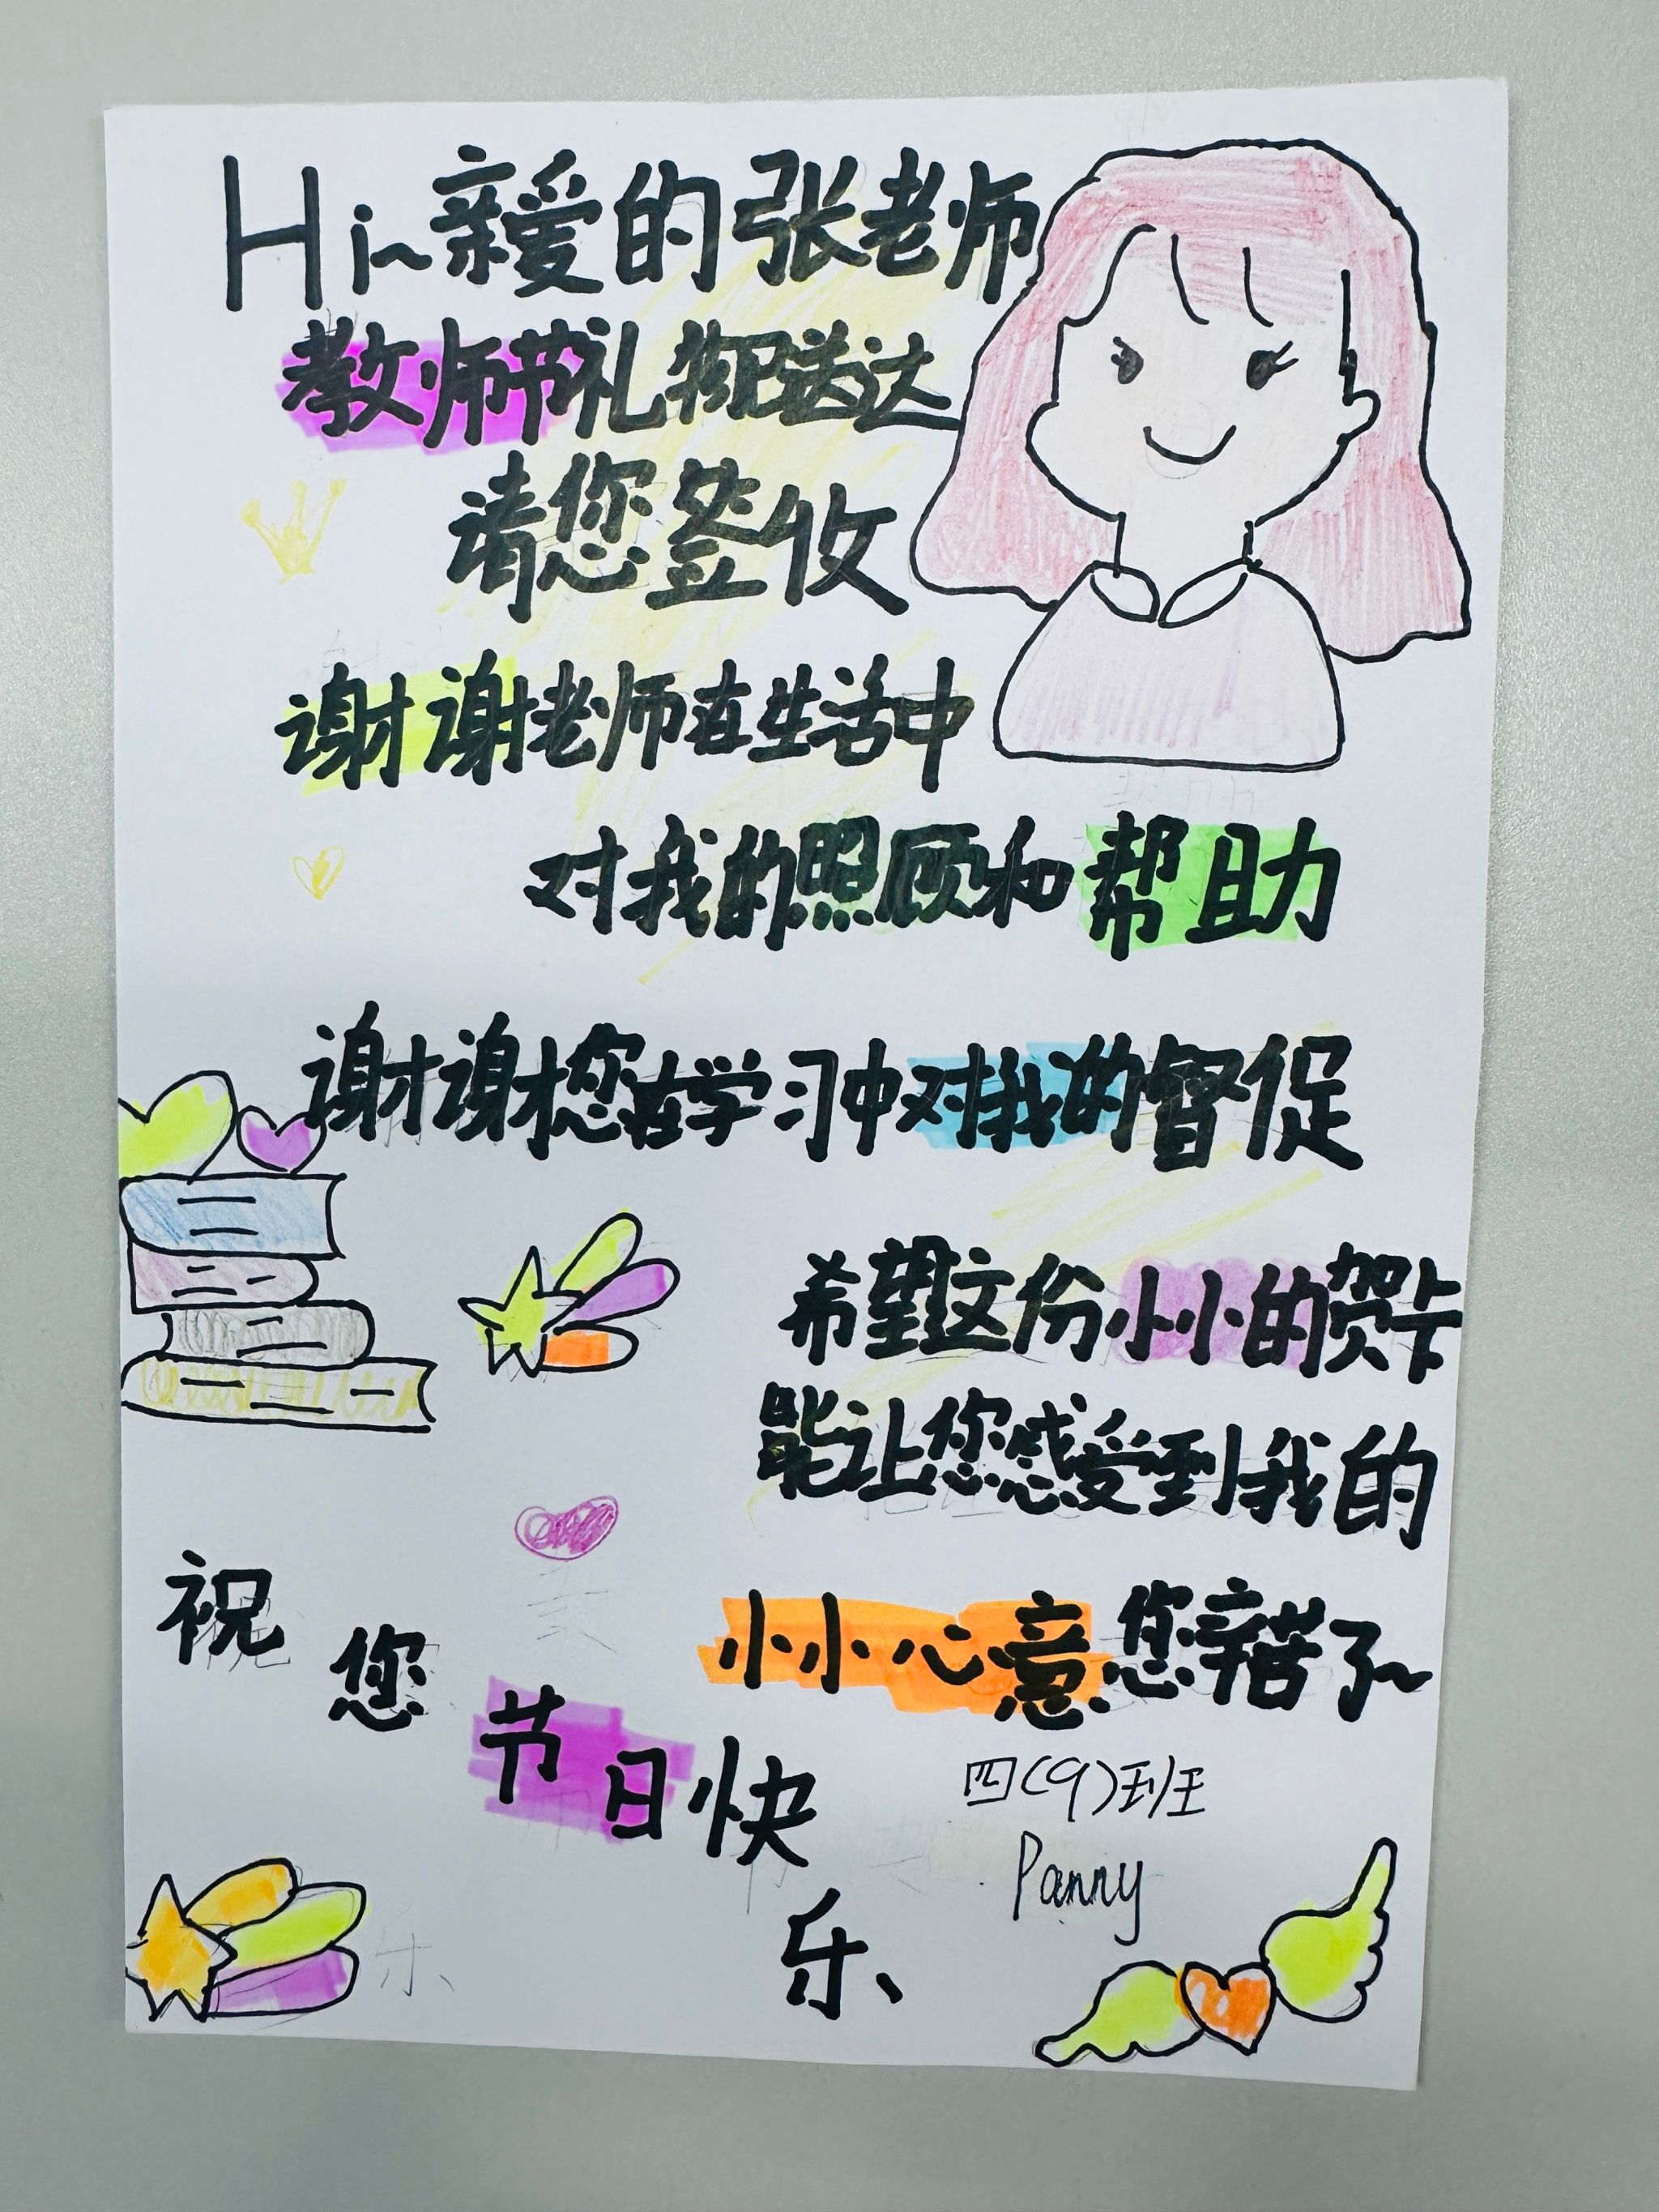 Hi~亲爱的张老师
教师节礼物已送达
请您签收
谢谢老师在生活中
对我的照顾和帮助
谢谢您在学习中对我的督促
希望这份小小的贺卡
能让您感受到我的
小小心意您辛苦了~
祝您节日快乐
四(9)班
Panny